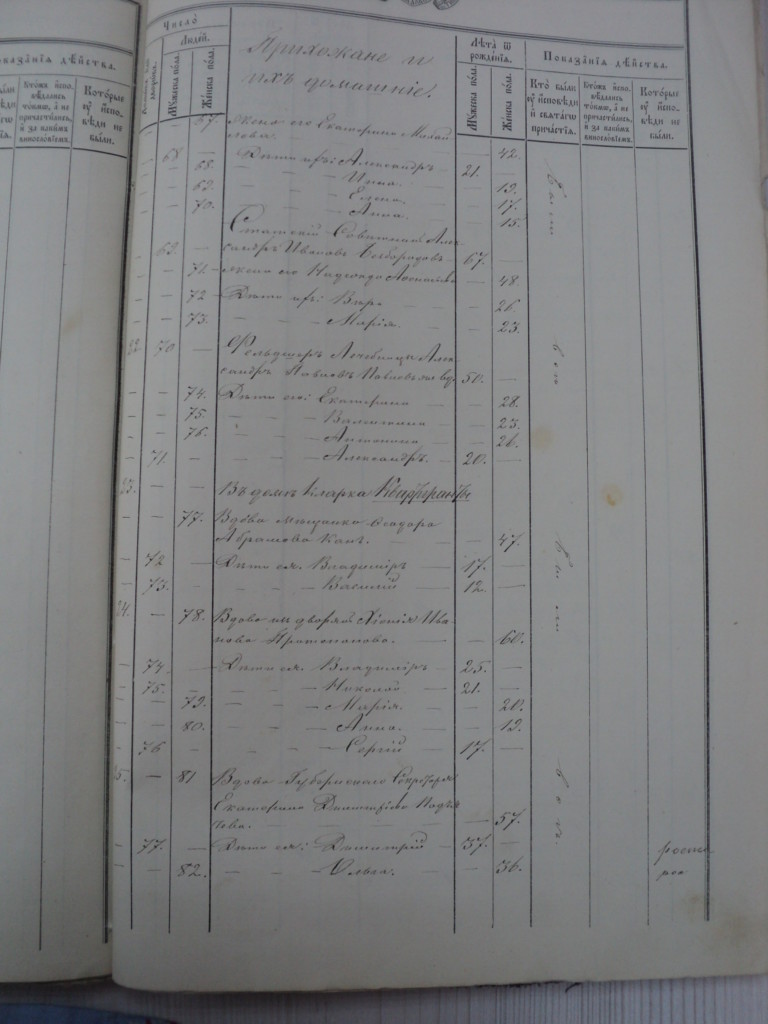 Число
Людей.
Мужеска пола.
Женска пола.
Прихожане и
ихъ домашніе.
Лѣта ѿ
рожденія.
Мужеска пола.
Женска пола.
Показанія дѣйства.
Кто были у исповѣди и святаго причастія.
Ктожъ исповѣдались токмо, а не причастились, и за какимъ винословіемъ.
Которые у исповѣди не были.
Показанія дѣйства.
Которые у исповѣди не были.
— 67. жена его Екатерина Михай
лова. — 42.
68 — Дѣти ихъ: Александръ — 21. —
— 68. — — Нина. — 19.
— 69. — — Елена. — 17.
— 70. — — Анна. — 15.
Статскій Совѣтникъ Алек
69. — сандръ Ивановъ — 67. —
— 71. жена его Надежда — 48.
— 72 Дѣти ихъ: Вѣра — 26
— 73. — — Марія. — 23.
22 70 — Фельдшеръ Лечебницы Алек
сандръ Павловъ 50. —
— 74. Дѣти его: Екатерина — 28.
— 75. — — Валентина — 23.
— 76. — — Антонина — 26.
71. — — — Александръ. — 20. —
23. Въ домѣ Кларка
— 77. Вдова мѣщанка Ѳеодора
Абрамова Канъ. — 47.
72 — Дѣти ея: Владиміръ — 17. —
73. — — — Василій 12. —
24. — 78. Вдова изъ дворянъ Хіонія Ива
нова Протопопова. — 60.
74. — Дѣти ея: Владиміръ — 25. —
75. — — — Николай — 21. —
— 79. — — Марія. — 20.
— 80. — — Анна. — 19.
76 — — — Сергій 17. —
25. — 81 Вдова Губернскаго Секретаря
Екатерина Дмитріева
— 57.
77. — Дѣти ея: Димитрій — 37. —
— 82. — — Ольга. — 36.